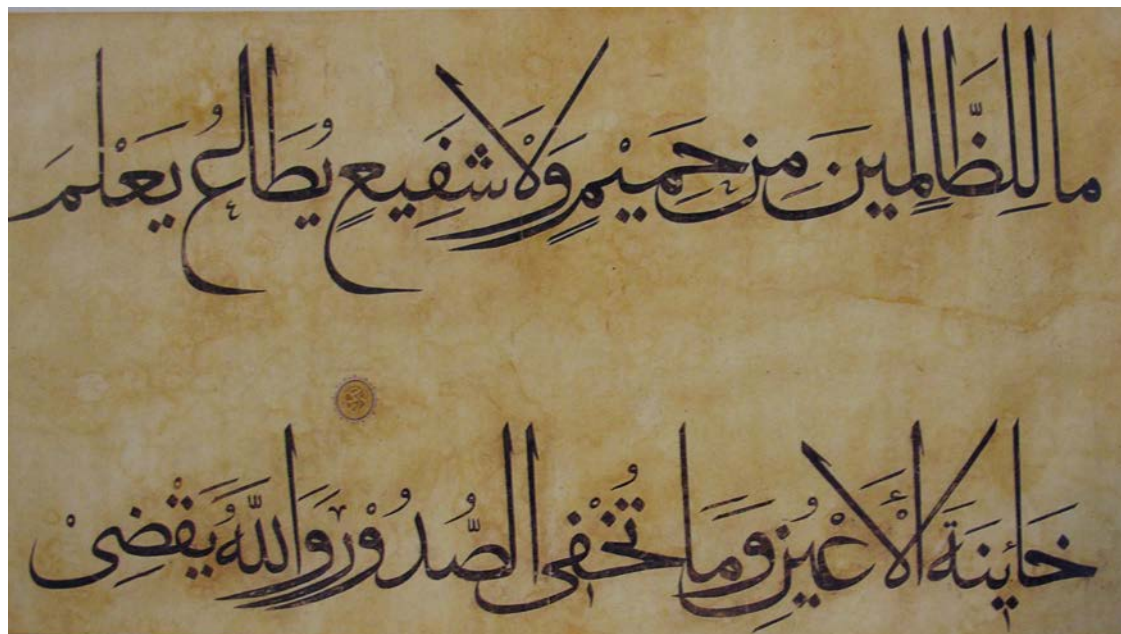 مَا لِلظَّالِمِينَ مِنْ حَمِيْمٍ وَلَا شَفِيعٍ يُطَاعُ يَعْلَمُ
خَائِنَةَ الْأَعْيُنِ وَمَا تُخْفِى الصُّدُوْرُ وَاللَّهُ يَقْضِىْ